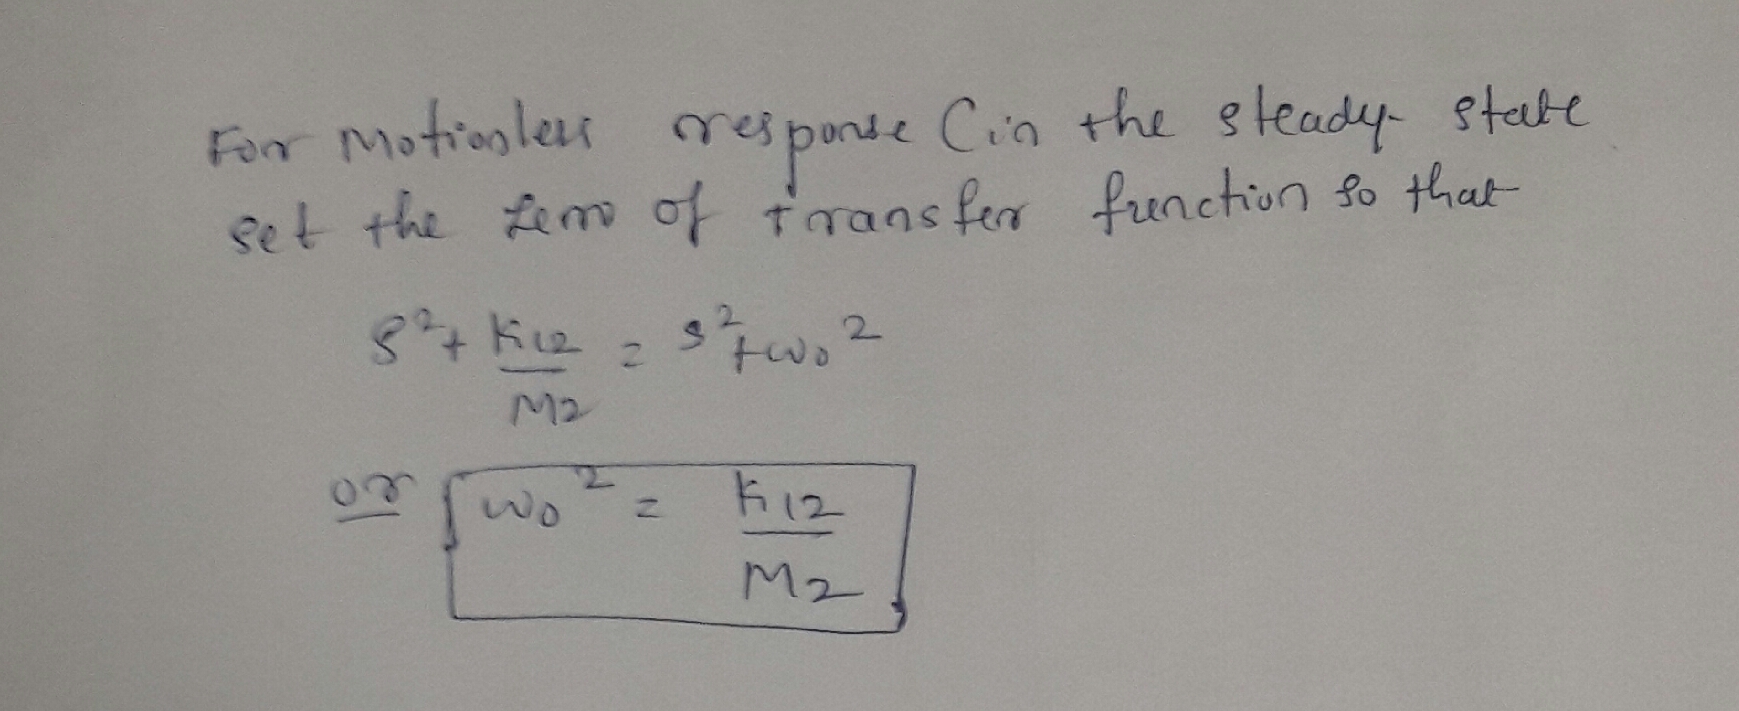 For motionless response (in the steady state
set the zero of transfer function so that
s² + K12/M2 = s² + ω0²
or ω0² = K12/M2